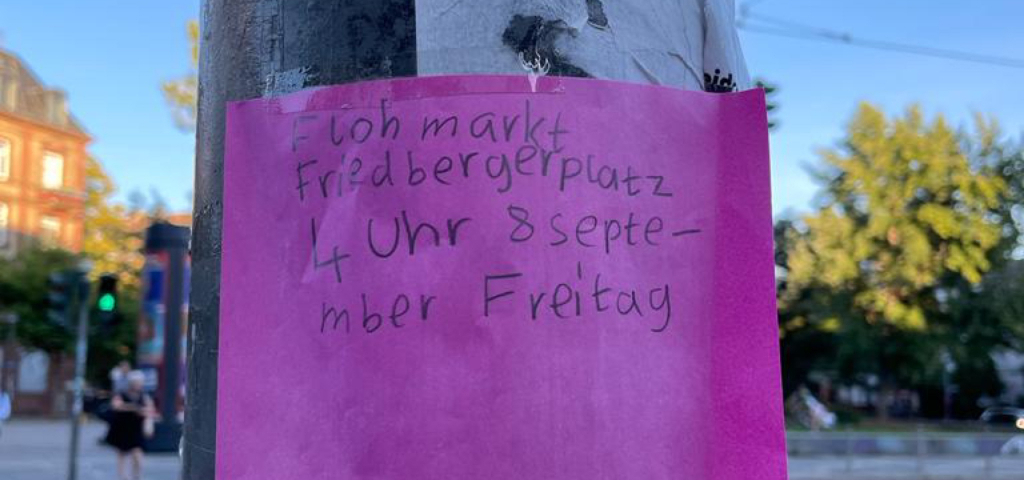 Flohmarkt
Friedbergerplatz
4 Uhr 8 septe-
mber Freitag